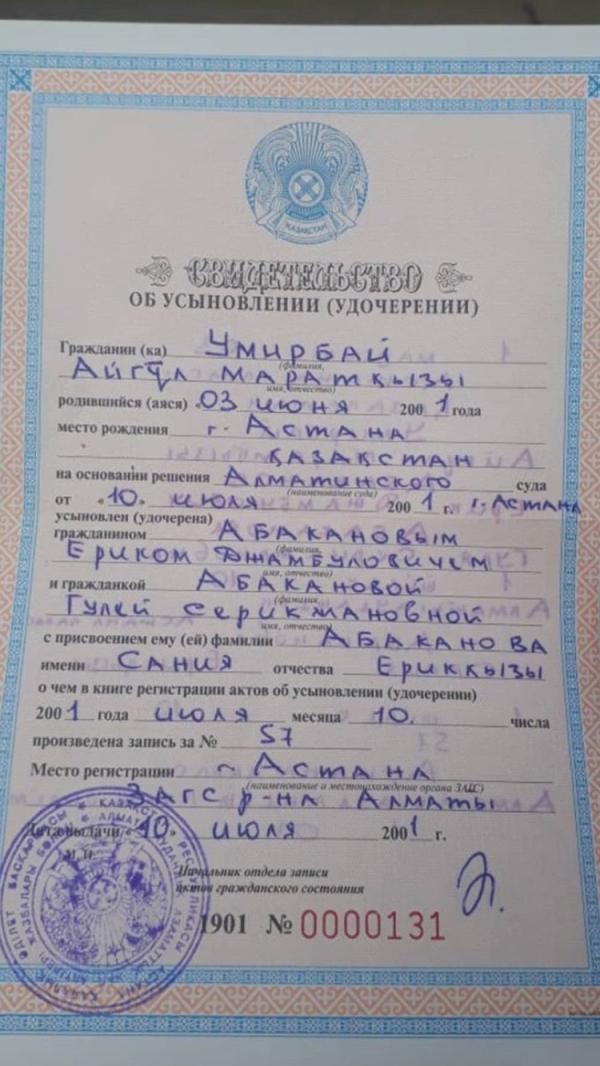 ҚАЗАҚСТАН
СВИДЕТЕЛЬСТВО
ОБ УСЫНОВЛЕНИИ (УДОЧЕРЕНИИ)
Гражданин (ка) Умирбай
(фамилия,
Айгүл Маратқызы
имя, отчество)
родившийся (аяся) «03 июня 2001 года
место рождения г. Астана
Қазақстан
на основании решения Алматинского суда
(наименование суда)
от «10» июля 2001 г. г. Астана
усыновлен (удочерена)
гражданином Абакановым
(фамилия,
Ериком Джамбуловичем
имя, отчество)
и гражданкой Абакановой
(фамилия,
Гулей Серикмановной
имя, отчество)
с присвоением ему (ей) фамилии Абаканова
имени Сания отчества Ерикқызы
о чем в книге регистрации актов об усыновлении (удочерении)
2001 года июля месяца 10. числа
произведена запись за № 57
Место регистрации г. Астана
(наименование и местонахождение органа ЗАГС)
ЗАГС р-на Алматы
Дата выдачи «10 июля 2001 г.
М.П.
Начальник отдела записи
актов гражданского состояния
1901 № 0000131